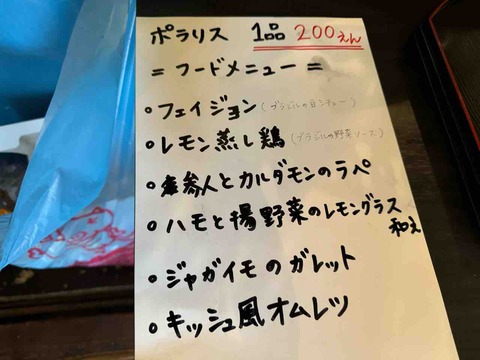 ポラリス 1品 200えん
= フードメニュー =
・フェイジョン (ブラジルの豆シチュー)
・レモン蒸し鶏 (ブラジルの野菜ソース)
・人参とカルダモンのラペ
・ハモと揚野菜のレモングラス
和え
・ジャガイモのガレット
・キッシュ風オムレツ